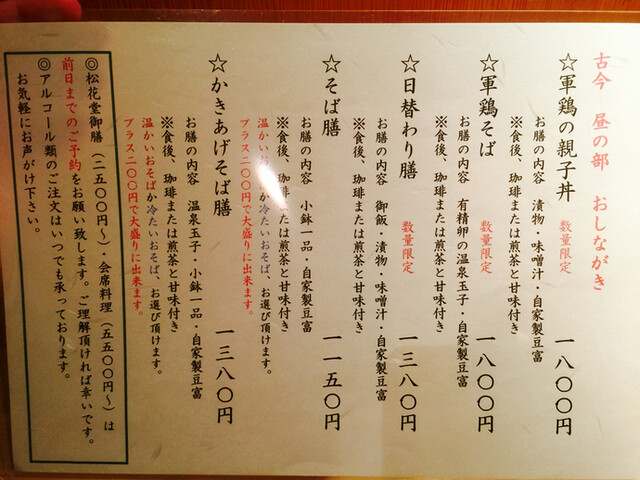 古今　昼の部　おしながき
☆軍鶏の親子丼　数量限定　一八〇〇円
お膳の内容　漬物・味噌汁・自家製豆富
※食後、珈琲または煎茶と甘味付き
☆軍鶏そば　数量限定　一八〇〇円
お膳の内容　有精卵の温泉玉子・自家製豆富
※食後、珈琲または煎茶と甘味付き
☆日替わり膳　数量限定　一三八〇円
お膳の内容　御飯・漬物・味噌汁・自家製豆富
※食後、珈琲または煎茶と甘味付き
☆そば膳　一一五〇円
お膳の内容　小鉢一品・自家製豆富
※食後、珈琲または煎茶と甘味付き
温かいおそばか冷たいおそば、お選び頂けます。
プラス二〇〇円で大盛りに出来ます。
☆かきあげそば膳　一三八〇円
お膳の内容　温泉玉子・小鉢一品・自家製豆富
※食後、珈琲または煎茶と甘味付き
温かいおそばか冷たいおそば、お選び頂けます。
プラス二〇〇円で大盛りに出来ます。
◎松花堂御膳（二五〇〇円～）・会席料理（五五〇〇円～）は
前日までのご予約をお願い致します。ご理解頂ければ幸いです。
◎アルコール類のご注文はいつでも承っております。
お気軽にお声がけ下さい。